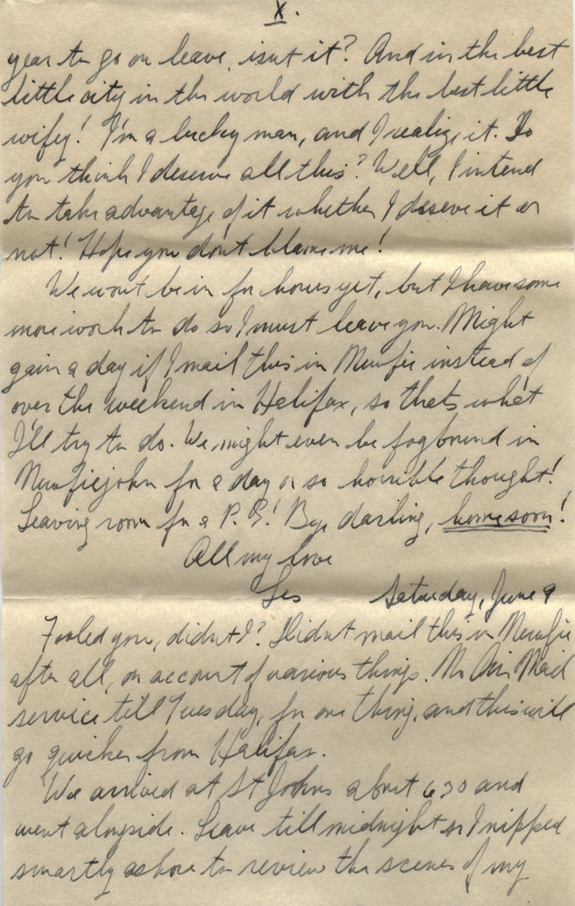 X.
year to go on leave, isnt it? And in the best
little city in the world with the best little
wifey! I'm a lucky man, and I realize it. Do
you think I deserve all this? Well, I intend
to take advantage of it whether I deserve it or
not! Hope you dont blame me!
We won't be in for hours yet, but I have some
more work to do so I must leave you. Might
gain a day if I mail this in Newfie instead of
over the weekend in Halifax, so thats what
I'll try to do. We might even be fogbound in
Newfiejohn for a day or so horrible thought!
Leaving room for a P.S.! Bye darling, home soon!
All my love
Les
Saturday, June 9
Fooled you, didnt I? Didnt mail this in Newfie
after all, on account of various things. No Air Mail
service till Tuesday, for one thing, and this will
go quicker from Halifax.
We arrived at St Johns about 630 and
went alongside. Leave till midnight so I nipped
smartly ashore to review the scenes of my